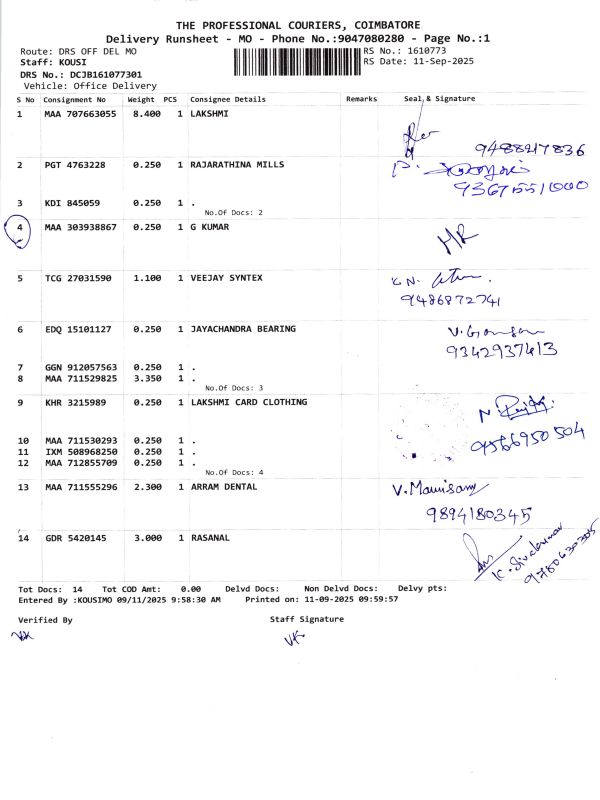 THE PROFESSIONAL COURIERS, COIMBATORE
Delivery Runsheet - MO - Phone No.:9047080280 - Page No.:1
Route: DRS OFF DEL MO RS No.: 1610773
Staff: KOUSI RS Date: 11-Sep-2025
DRS No.: DCJB161077301
Vehicle: Office Delivery
S No Consignment No Weight PCS Consignee Details Remarks Seal & Signature
1 MAA 707663055 8.400 1 LAKSHMI
9488217836
2 PGT 4763228 0.250 1 RAJARATHINA MILLS
3 KDI 845059 0.250 1 .
No.Of Docs: 2
4 MAA 303938867 0.250 1 G KUMAR
5 TCG 27031590 1.100 1 VEEJAY SYNTEX
9486872741
6 EDQ 15101127 0.250 1 JAYACHANDRA BEARING
9342937413
7 GGN 912057563 0.250 1 .
8 MAA 711529825 3.350 1 .
No.Of Docs: 3
9 KHR 3215989 0.250 1 LAKSHMI CARD CLOTHING
9566950504
10 MAA 711530293 0.250 1 .
11 IXM 508968250 0.250 1 .
12 MAA 712855709 0.250 1 .
No.Of Docs: 4
13 MAA 711555296 2.300 1 ARRAM DENTAL
9894180345
14 GDR 5420145 3.000 1 RASANAL
Tot Docs: 14 Tot COD Amt: 0.00 Delvd Docs: Non Delvd Docs: Delvy pts:
Entered By :KOUSIMO 09/11/2025 9:58:30 AM Printed on: 11-09-2025 09:59:57
Verified By Staff Signature